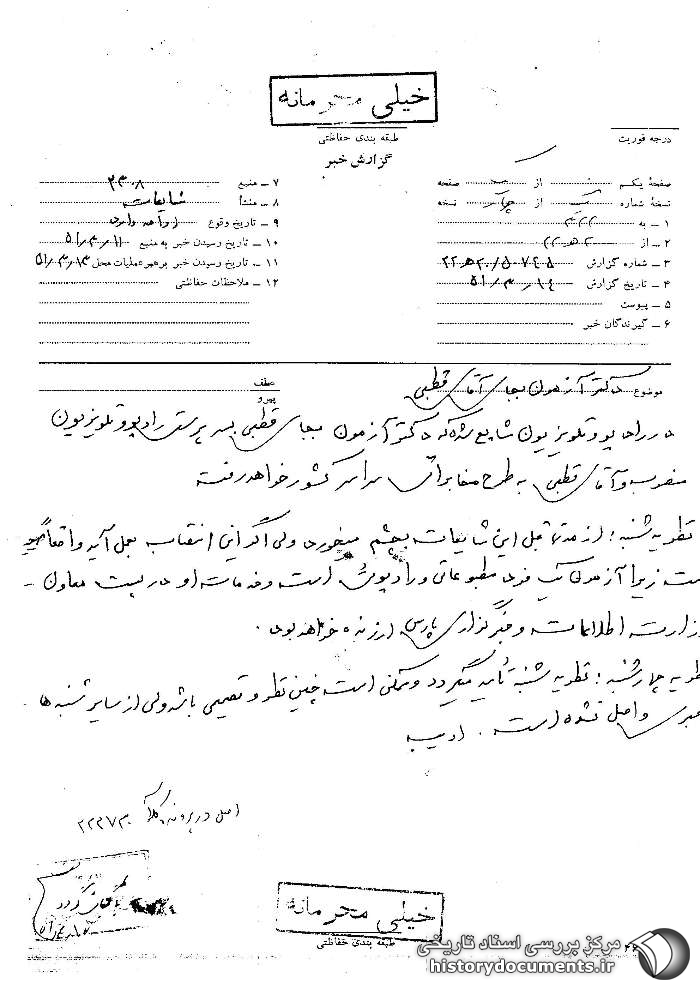 خیلی محرمانه
طبقه بندی حفاظتی
درجه فوریت
گزارش خبر
صفحهٔ یکم از صفحه
نسخهٔ شماره یک از چهار نسخه
۱ ـ به ۳۲۲
۲ ـ از ۲۰ هـ ۲۲
۳ ـ شماره گزارش ۲۰/۵۰۷۴۵ هـ ۲۲
۴ ـ تاریخ گزارش ۵۱/۳/۱۴
۵ ـ پیوست
۶ ـ گیرندگان خبر
۷ ـ منبع ۲۳۰۸
۸ ـ منشأ شایعات
۹ ـ تاریخ وقوع
۱۰ ـ تاریخ رسیدن خبر به منبع ۵۱/۳/۱۱
۱۱ ـ تاریخ رسیدن خبر برهبر عملیات محل ۵۱/۳/۱۳
۱۲ ـ ملاحظات حفاظتی
موضوع دکتر آزمون بجای آقای قطبی
عطف
پیرو
در رادیو و تلویزیون شایع شده که دکتر آزمون بجای قطبی بسرپرستی رادیو و تلویزیون
منصوب و آقای قطبی به طرح مخابراتی سراسر کشور خواهد رفت
نظریه شنبه: از مدتی قبل این شایعات بچشم میخورد ولی اگر این انتصاب بعمل آید واقعاً
است زیرا آزمون یک فرد مطبوعاتی و رادیوئی است و خدمات او در پست معاون
وزارت اطلاعات و خبرگزاری پارس ارزنده خواهد بود.
نظریه چهارشنبه: نظریه شنبه تأیید میگردد و ممکن است چنین نظر و تصمیمی باشد ولی از سایر شنبه ها
خبری واصل نشده است. ادیب
اصل در پرونده ۲۲۳۷۳۰
بایگانی گردد
خیلی محرمانه
طبقه بندی حفاظتی
مرکز بررسی اسناد تاریخی
historydocuments.ir